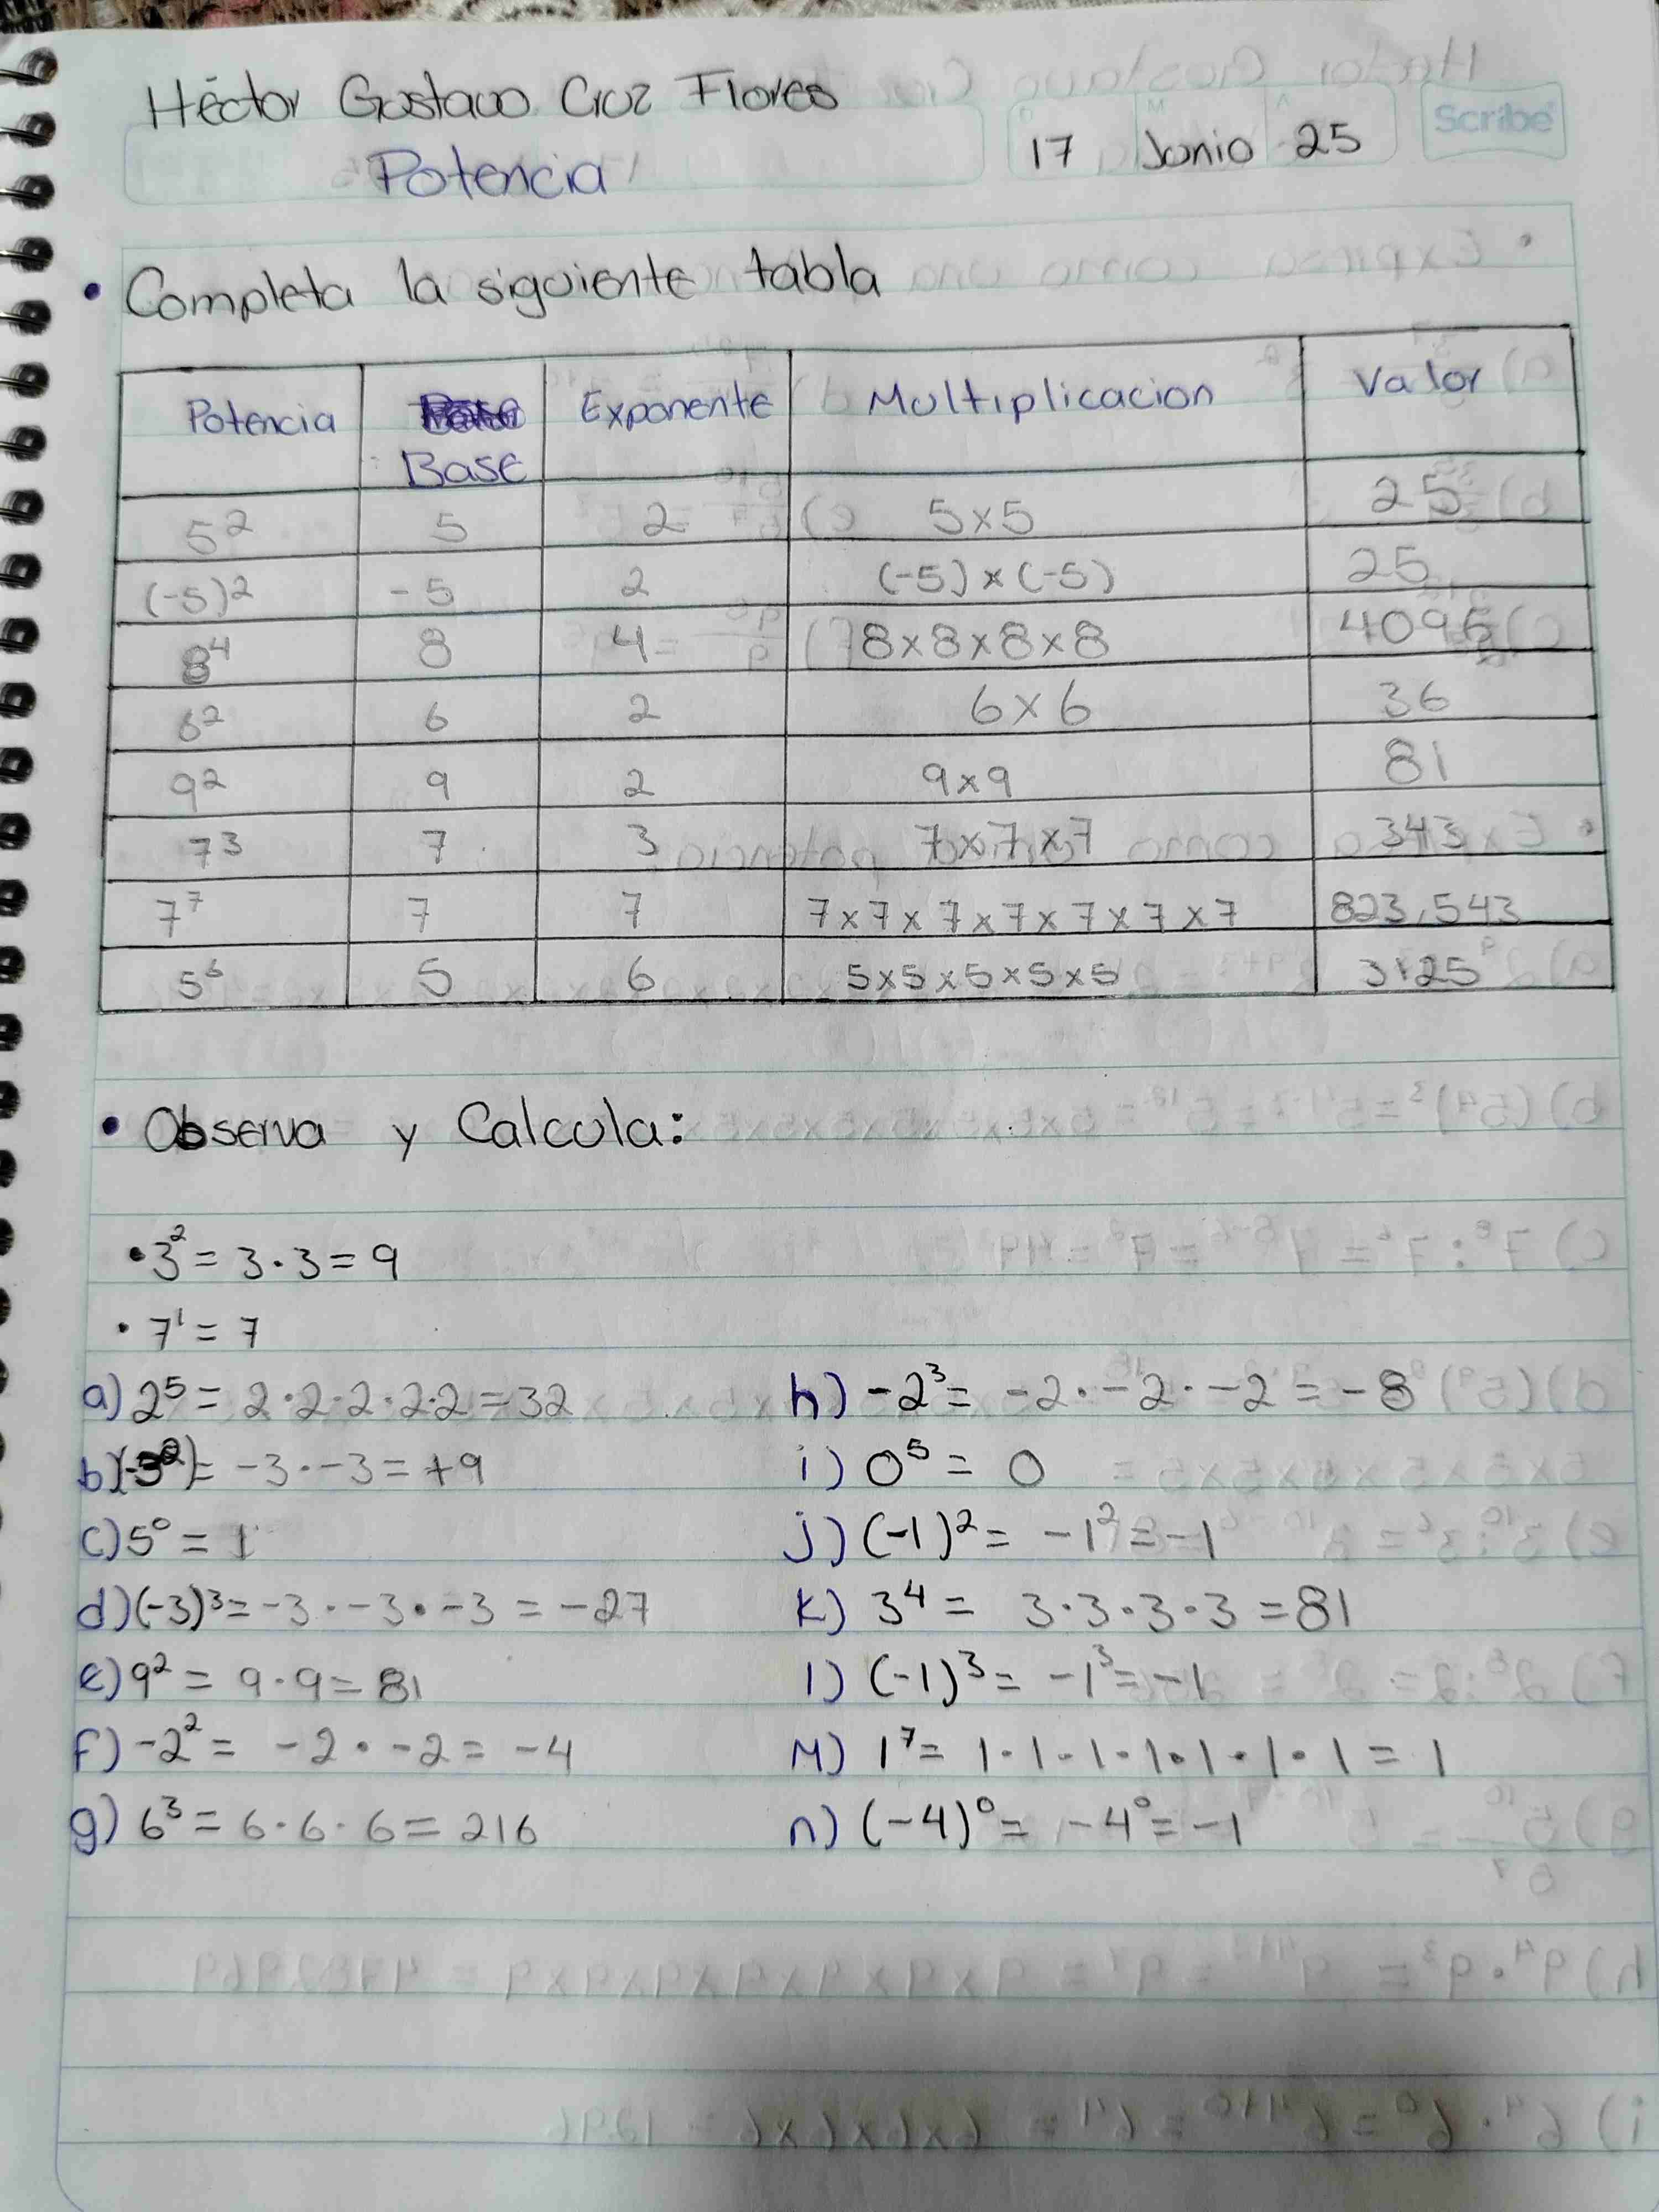 Héctor Gustavo Cruz Flores
Scribe
Potencia
17 Junio 25
• Completa la siguiente tabla
Potencia Base Exponente Multiplicacion Valor
5² 5 2 5x5 25
(-5)² -5 2 (-5)x(-5) 25
8⁴ 8 4 8x8x8x8 4096
6² 6 2 6x6 36
9² 9 2 9x9 81
7³ 7 3 7x7x7 343
7⁷ 7 7 7x7x7x7x7x7x7 823,543
5⁶ 5 6 5x5x5x5x5 3125
• Observa y Calcula:
• 3² = 3·3 = 9
• 7¹ = 7
a) 2⁵ = 2·2·2·2·2 = 32
b) (-3²) = -3·-3 = +9
c) 5⁰ = 1
d) (-3)³ = -3·-3·-3 = -27
e) 9² = 9·9 = 81
f) -2² = -2·-2 = -4
g) 6³ = 6·6·6 = 216
h) -2³ = -2·-2·-2 = -8
i) 0⁵ = 0
j) (-1)² = -1² = -1
k) 3⁴ = 3·3·3·3 = 81
l) (-1)³ = -1³ = -1
M) 1⁷ = 1·1·1·1·1·1·1 = 1
n) (-4)⁰ = -4⁰ = -1